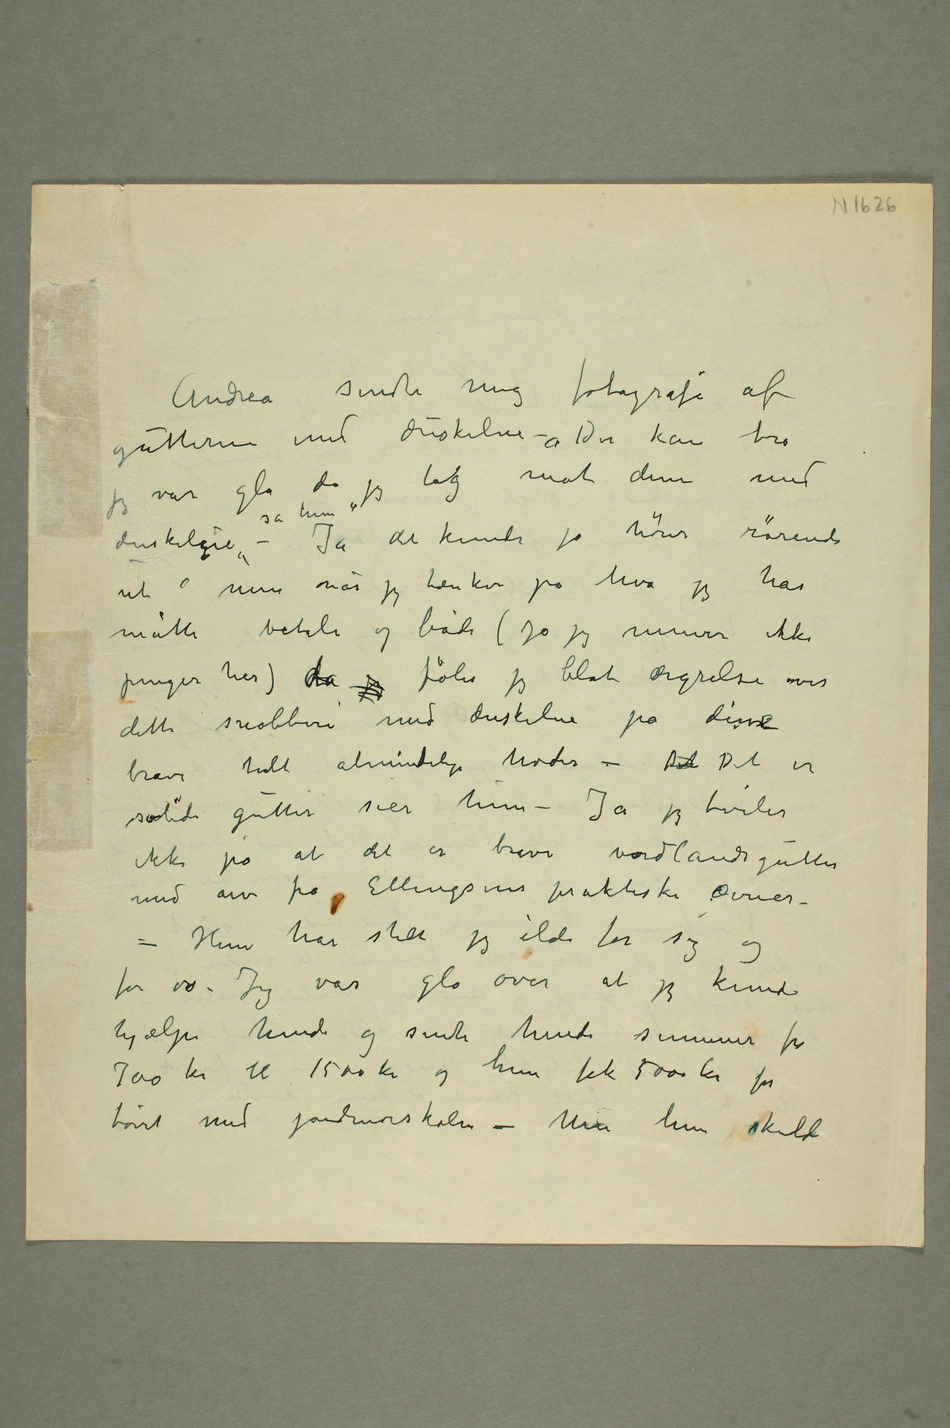 N 1626
Andrea sendte mig fotografi af
gutterne med duskelue – Der kan tro
jg var gla da jg tog mot dem med
duskeluerne" – sa hun " Ja det kunde jo höres rörende
ut men når jg tænker på hva jg har
måtte betale og både (jo jg mener ikke
penger her) da jg föler jg blot ærgrelse over
dette snobberi med duskelue på disse
brave helt almindelige hoder – Det Det er
solide gutter sier hun – Ja jg tviler
ikke på at det er brave nordlandsgutter
med arv fra Ellingsens praktiske evner –
– Hun har stelt jg ilde for sig og
for os. Jeg var gla over at jg kunde
hjælpe hende og sendte hende summer fra
700 kr til 1500 kr og hun fik 5000 kr for
tövet med jordmorskolen – Men hun skuld